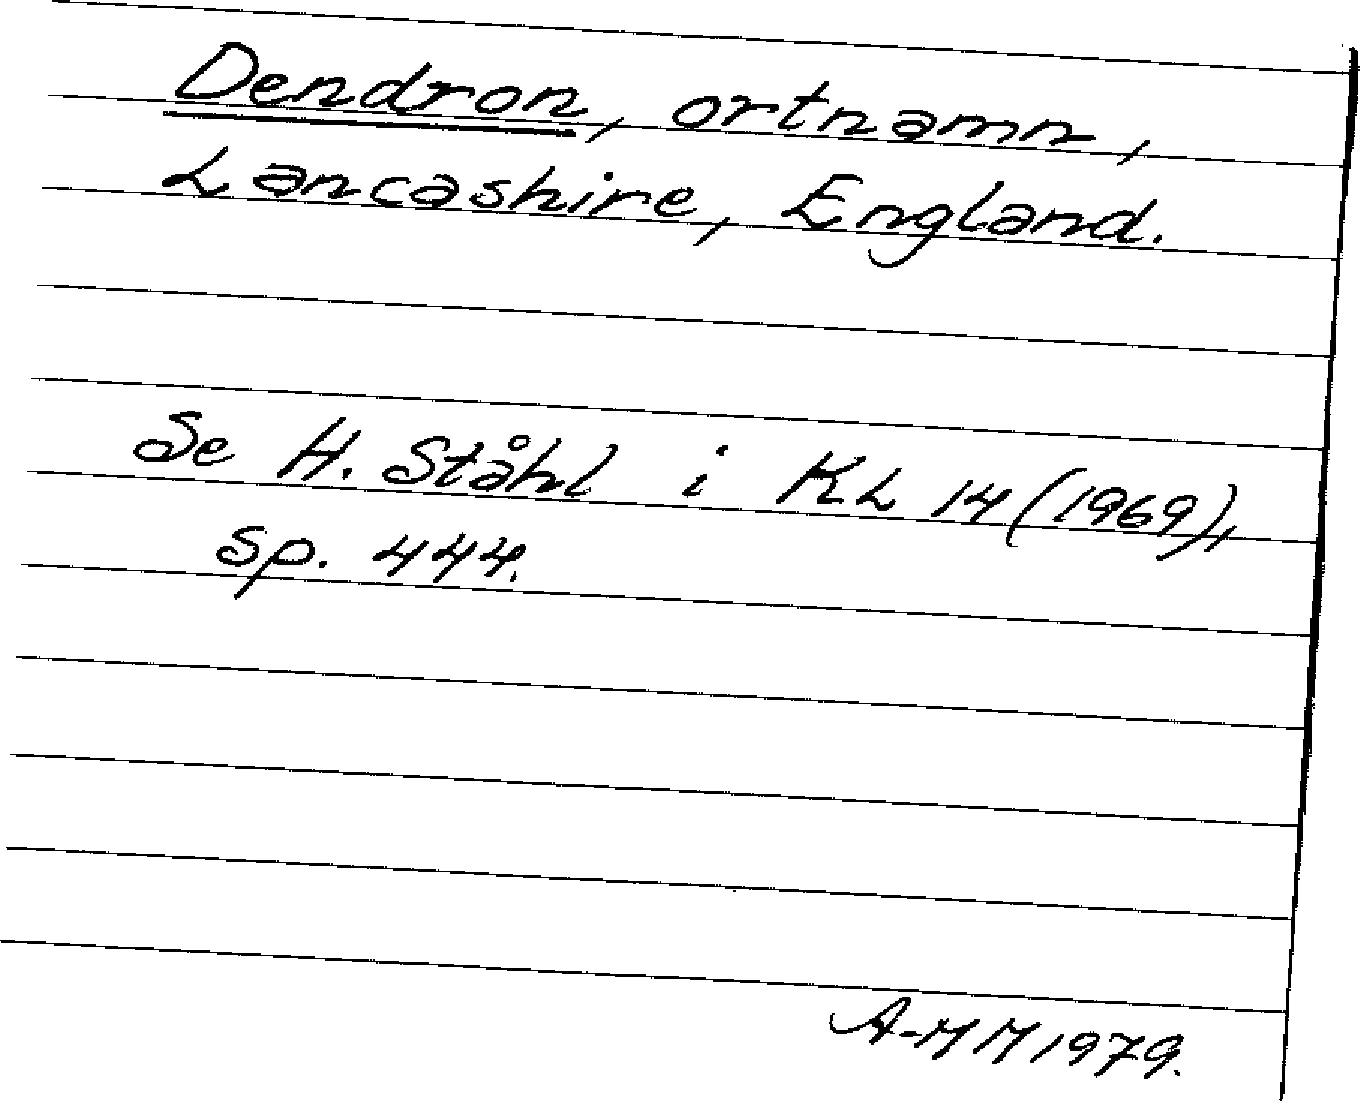 Dendron, ortnamn,
Lancashire, England.
Se H. Ståhl i KL 14 (1969),
sp. 444.
A-MM 1979.